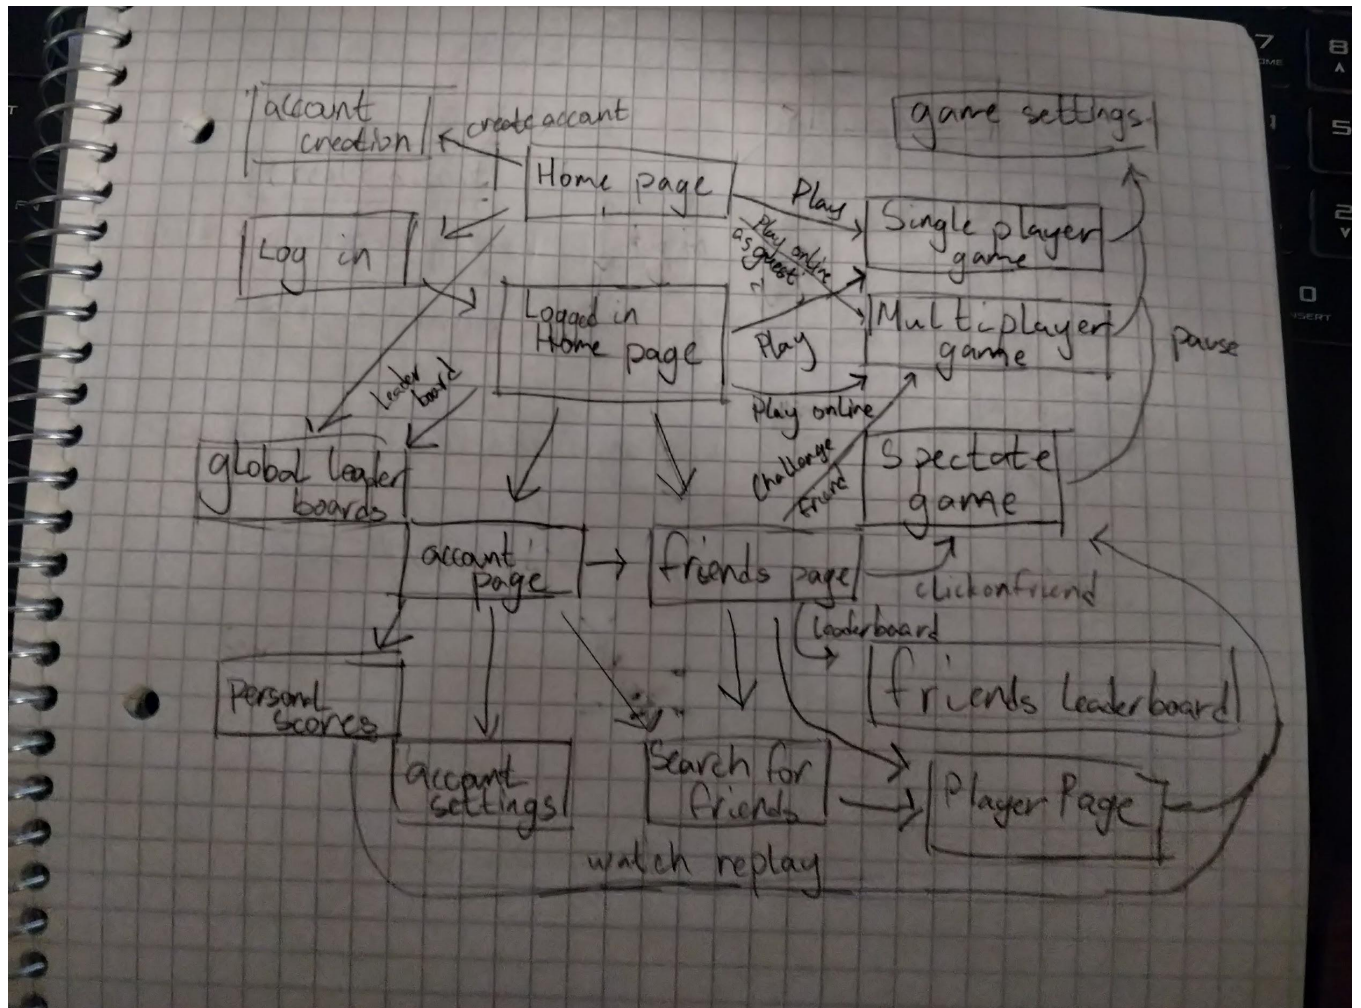 account
creation
create account
game settings
Home page
Play
Single player
game
Play online
as guest
Log in
Logged in
Home page
Multiplayer
game
Play
pause
Leader
board
Play online
Challenge
friend
Spectate
game
global leader
boards
account
page
friends page
click on friend
leaderboard
friends leaderboard
personal
scores
account
settings
Search for
friends
Player Page
watch replay
7
8
5
2
0